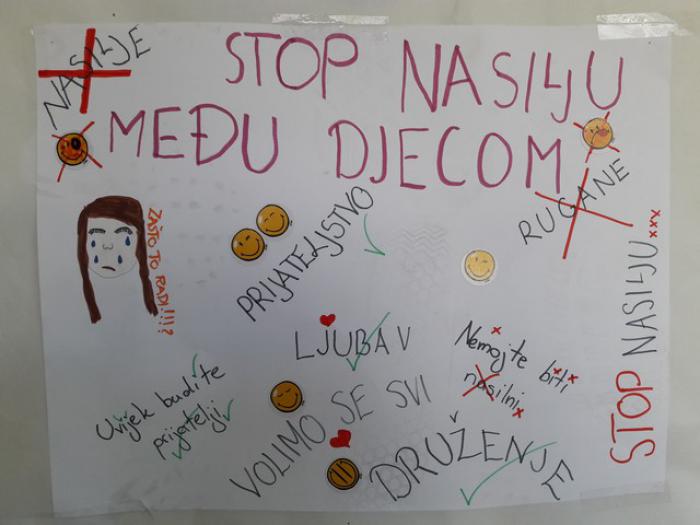 NASILJE
STOP NASILJU
MEĐU DJECOM
RUGANE
ZAŠTO TO RADI!!!?
PRIJATELJSTVO
STOP NASILJU...xxx
LJUBAV
Nemojte biti
nasilni
Uvijek budite
prijatelji
VOLIMO SE SVI
DRUŽENJE